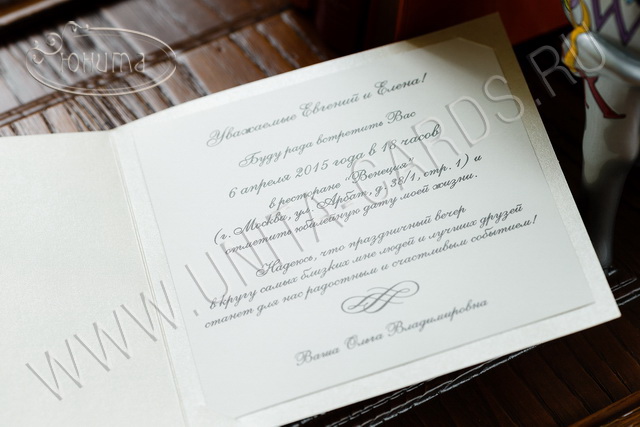 Юнита
Уважаемые Евгений и Елена!
Буду рада встретить Вас
6 апреля 2015 года в 16 часов
в ресторане "Венеция"
(г. Москва, ул. Арбат, д. 38/1, стр. 1) и
отметить юбилейную дату моей жизни.
Надеюсь, что праздничный вечер
в кругу самых близких мне людей и лучших друзей
станет для нас радостным и счастливым событием!
Ваша Ольга Владимировна
WWW.UNITA-CARDS.RU